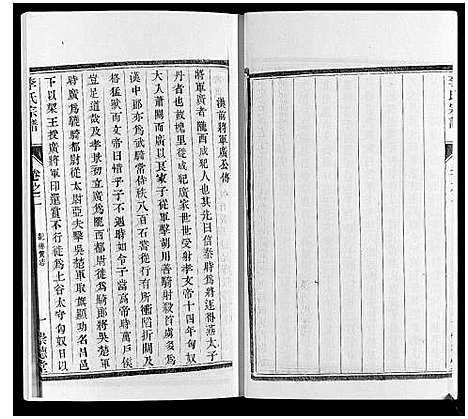 漢前將軍廣公傳
將軍廣者隴西成犯人也其先曰信秦時爲將逐得燕太子
丹者也故槐里徙成犯廣家世世受射孝文帝十四年匈奴
大人蕭關而廣以良家子從軍擊胡用善騎射殺首虜多爲
漢中郎亦爲武騎常侍秩八百石嘗從行有所衝陷折關及
格猛獸而文帝曰惜乎子不遇時如令子當高帝時萬戶侯
豈足道哉及孝景初立廣爲隴西都尉徙爲騎郎將吳楚軍
時廣爲驍騎都尉從太尉亞夫擊吳楚軍取旗顯功名昌邑
下以梁王授廣將軍印還賞不行徙爲上谷太守匈奴日以
李氏宗譜
卷之二
一
崇德堂
李氏宗譜